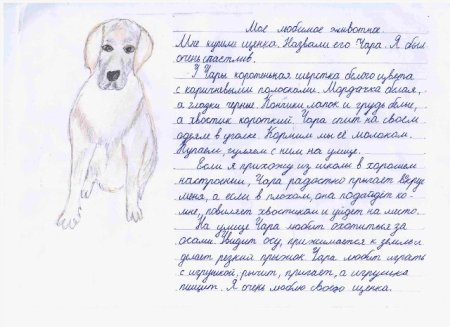 Мое любимое животное.
Мне купили щенка. Назвали его Чара. Я был
очень счастлив.
У Чары коротенькая шерстка белого цвета
с коричневыми полосками. Мордочка белая,
а глазки черные. Кончики лапок и грудь белые,
а хвостик короткий. Чара спит на своем
одеяле в уголке. Кормим мы её молоком.
Купаем, гуляем с ним на улице.
Если я прихожу из школы в хорошем
настроении, Чара радостно прыгает вокруг
меня, а если в плохом, она подойдёт ко
мне, повиляет хвостиком и уйдет на место.
На улице Чара любит охотиться за
осами. Увидит осу, прижимается к земле и
делает резкий прыжок. Чара любит играть
с игрушкой, рычит, прыгает, а игрушка
пищит. Я очень люблю своего щенка.